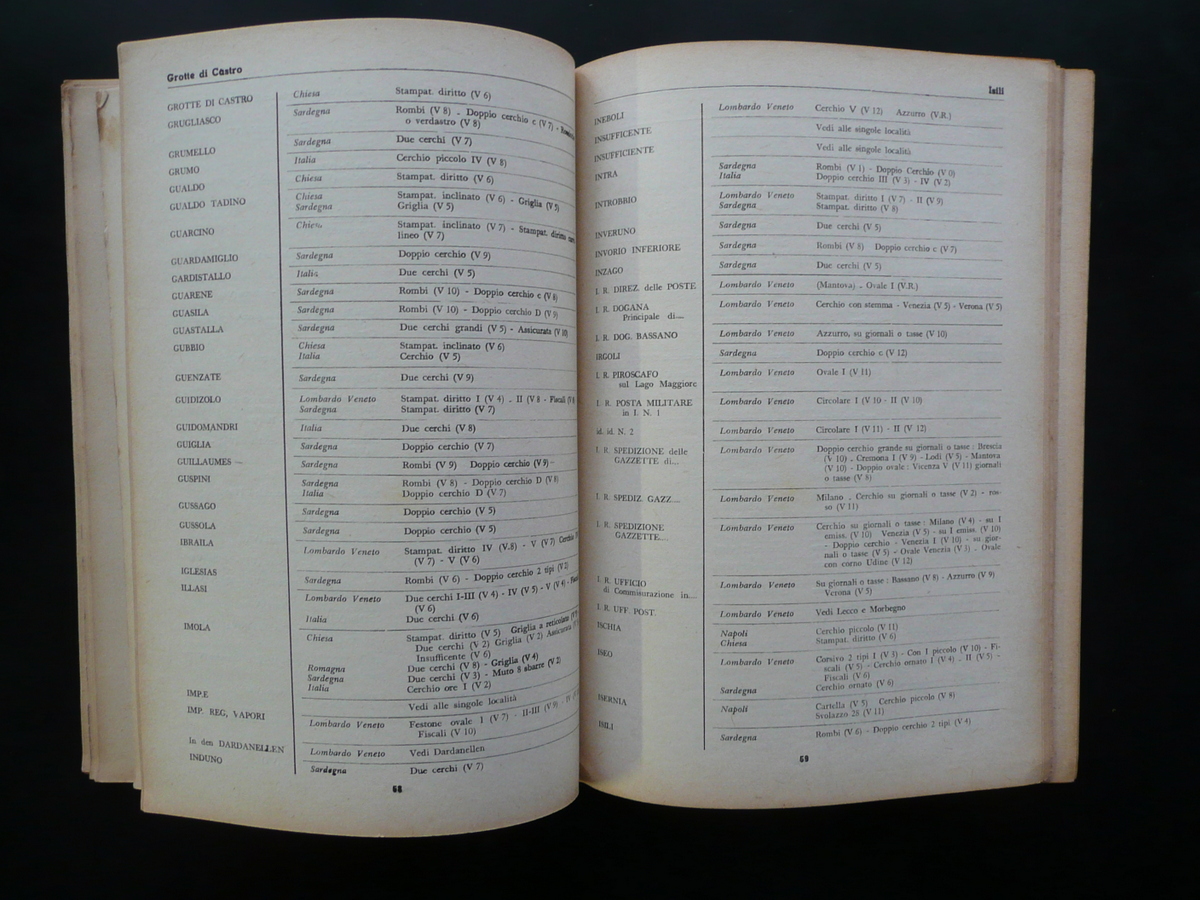 Grotte di Castro
GROTTE DI CASTRO Chiesa Stampat. diritto (V 6)
GRUGLIASCO Sardegna Rombi (V 8) - Doppio cerchio c (V 7) -
o verdastro (V 8)
GRUMELLO Sardegna Due cerchi (V 7)
GRUMO Italia Cerchio piccolo IV (V 8)
GUALDO Chiesa Stampat. diritto (V 6)
GUALDO TADINO Chiesa Stampat. inclinato (V 6) - Griglia (V 5)
Sardegna Griglia (V 5)
GUARCINO Chiesa Stampat. inclinato (V 7) - Stampat. diritto
lineo (V 7)
GUARDAMIGLIO Sardegna Doppio cerchio (V 9)
GARDISTALLO Italia Due cerchi (V 5)
GUARENE Sardegna Rombi (V 10) - Doppio cerchio c (V 8)
GUASILA Sardegna Rombi (V 10) - Doppio cerchio D (V 9)
GUASTALLA Sardegna Due cerchi grandi (V 5) - Assicurata (V 10)
GUBBIO Chiesa Stampat. inclinato (V 6)
Italia Cerchio (V 5)
GUENZATE Sardegna Due cerchi (V 9)
GUIDIZOLO Lombardo Veneto Stampat. diritto I (V 4) - II (V 8 - Fiscali (V 8)
Sardegna Stampat. diritto (V 7)
GUIDOMANDRI Italia Due cerchi (V 8)
GUIGLIA Sardegna Doppio cerchio (V 7)
GUILLAUMES Sardegna Rombi (V 9) Doppio cerchio (V 9)
GUSPINI Sardegna Rombi (V 8) - Doppio cerchio D (V 8)
Italia Doppio cerchio D (V 7)
GUSSAGO Sardegna Doppio cerchio (V 5)
GUSSOLA Sardegna Doppio cerchio (V 5)
IBRAILA Lombardo Veneto Stampat. diritto IV (V.8) - V (V 7) Cerchio
(V 7) - V (V 6)
IGLESIAS Sardegna Rombi (V 6) - Doppio cerchio 2 tipi (V 2)
ILLASI Lombardo Veneto Due cerchi I-III (V 4) - IV (V 5) - V (V 4) -
(V 6)
Italia Due cerchi (V 6)
IMOLA Chiesa Stampat. diritto (V 5) Griglia a reticolato
Due cerchi (V 2) Griglia (V 2) Assicurata
Insufficente (V 6)
Romagna Due cerchi (V 8) - Griglia (V 4)
Sardegna Due cerchi (V 3) - Muto 8 sbarre (V 2)
Italia Cerchio ore I (V 2)
IMP.E Vedi alle singole località
IMP. REG. VAPORI Lombardo Veneto Festone ovale I (V 7) - II-III (V 9) - IV
Fiscali (V 10)
In den DARDANELLEN Lombardo Veneto Vedi Dardanellen
INDUNO Sardegna Due cerchi (V 7)
68
Isili
INEBOLI Lombardo Veneto Cerchio V (V 12) Azzurro (V.R.)
INSUFFICENTE Vedi alle singole località
INSUFFICIENTE Vedi alle singole località
INTRA Sardegna Rombi (V 1) - Doppio Cerchio (V 0)
Italia Doppio cerchio III (V 3) - IV (V 2)
INTROBBIO Lombardo Veneto Stampat. diritto I (V 7) - II (V 9)
Sardegna Stampat. diritto (V 8)
INVERUNO Sardegna Due cerchi (V 5)
INVORIO INFERIORE Sardegna Rombi (V 8) Doppio cerchio c (V 7)
INZAGO Sardegna Due cerchi (V 5)
I. R. DIREZ. delle POSTE Lombardo Veneto (Mantova) - Ovale I (V.R.)
I. R. DOGANA Lombardo Veneto Cerchio con stemma - Venezia (V 5) - Verona (V 5)
Principale di—
I. R. DOG. BASSANO Lombardo Veneto Azzurro, su giornali o tasse (V 10)
IRGOLI Sardegna Doppio cerchio c (V 12)
I. R. PIROSCAFO Lombardo Veneto Ovale I (V 11)
sul Lago Maggiore
I. R. POSTA MILITARE Lombardo Veneto Circolare I (V 10 - II (V 10)
in I. N. 1
id. id. N. 2 Lombardo Veneto Circolare I (V 11) - II (V 12)
I. R. SPEDIZIONE delle Lombardo Veneto Doppio cerchio grande su giornali o tasse : Brescia
GAZZETTE di— (V 10) - Cremona I (V 9) - Lodi (V 5) - Mantova
(V 10) - Doppio ovale : Vicenza V (V 11) giornali
o tasse (V 8)
I. R. SPEDIZ GAZZ— Lombardo Veneto Milano - Cerchio su giornali o tasse (V 2) - ros-
so (V 11)
I. R. SPEDIZIONE Lombardo Veneto Cerchio su giornali o tasse : Milano (V 4) - su I
GAZZETTE— emiss. (V 10) Venezia (V 5) - su I emiss. (V 10)
- Doppio cerchio - Venezia I (V 10) - su gior-
nali o tasse (V 5) - Ovale Venezia (V 3) - Ovale
con corno Udine (V 12)
I. R. UFFICIO Lombardo Veneto Su giornali o tasse : Bassano (V 8) - Azzurro (V 9)
di Commisurazione in— Verona (V 5)
I. R. UFF. POST. Lombardo Veneto Vedi Lecco e Morbegno
ISCHIA Napoli Cerchio piccolo (V 11)
Chiesa Stampat. diritto (V 6)
ISEO Lombardo Veneto Corsivo 2 tipi I (V 3) - Con I piccolo (V 10) - Fi-
scali (V 5) - Cerchio ornato I (V 4) - II (V 5) -
Fiscali (V 6)
Sardegna Cerchio ornato (V 6)
ISERNIA Napoli Cartella (V 5) Cerchio piccolo (V 8)
Svolazzo 28 (V 11)
ISILI Sardegna Rombi (V 6) - Doppio cerchio 2 tipi (V 4)
69